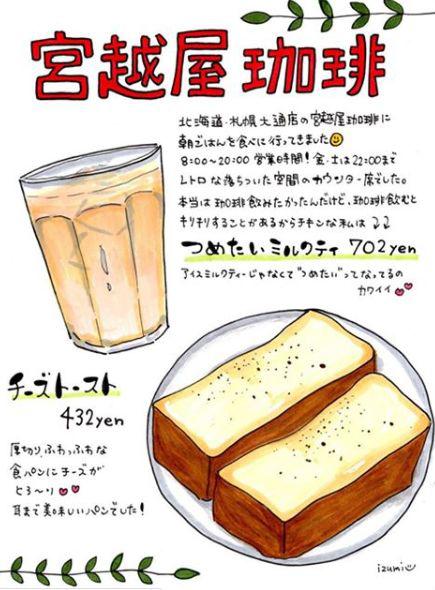 宮越屋珈琲
北海道・札幌大通店の宮越屋珈琲に
朝ごはんを食べに行ってきました
8:00~20:00 営業時間！金・土は22:00まで
レトロな落ちついた空間のカウンター席でした。
本当は珈琲飲みたかったんだけど、珈琲飲むと
キリキリすることがあるからチキンな私は↴↴
つめたいミルクティ 702yen
アイスミルクティーじゃなくて"つめたい"ってなってるの
カワイイ
チーズトースト
432yen
厚切り、ふわっふわな
食パンにチーズが
とろ〜り
耳まで美味しいパンでした！
izumi